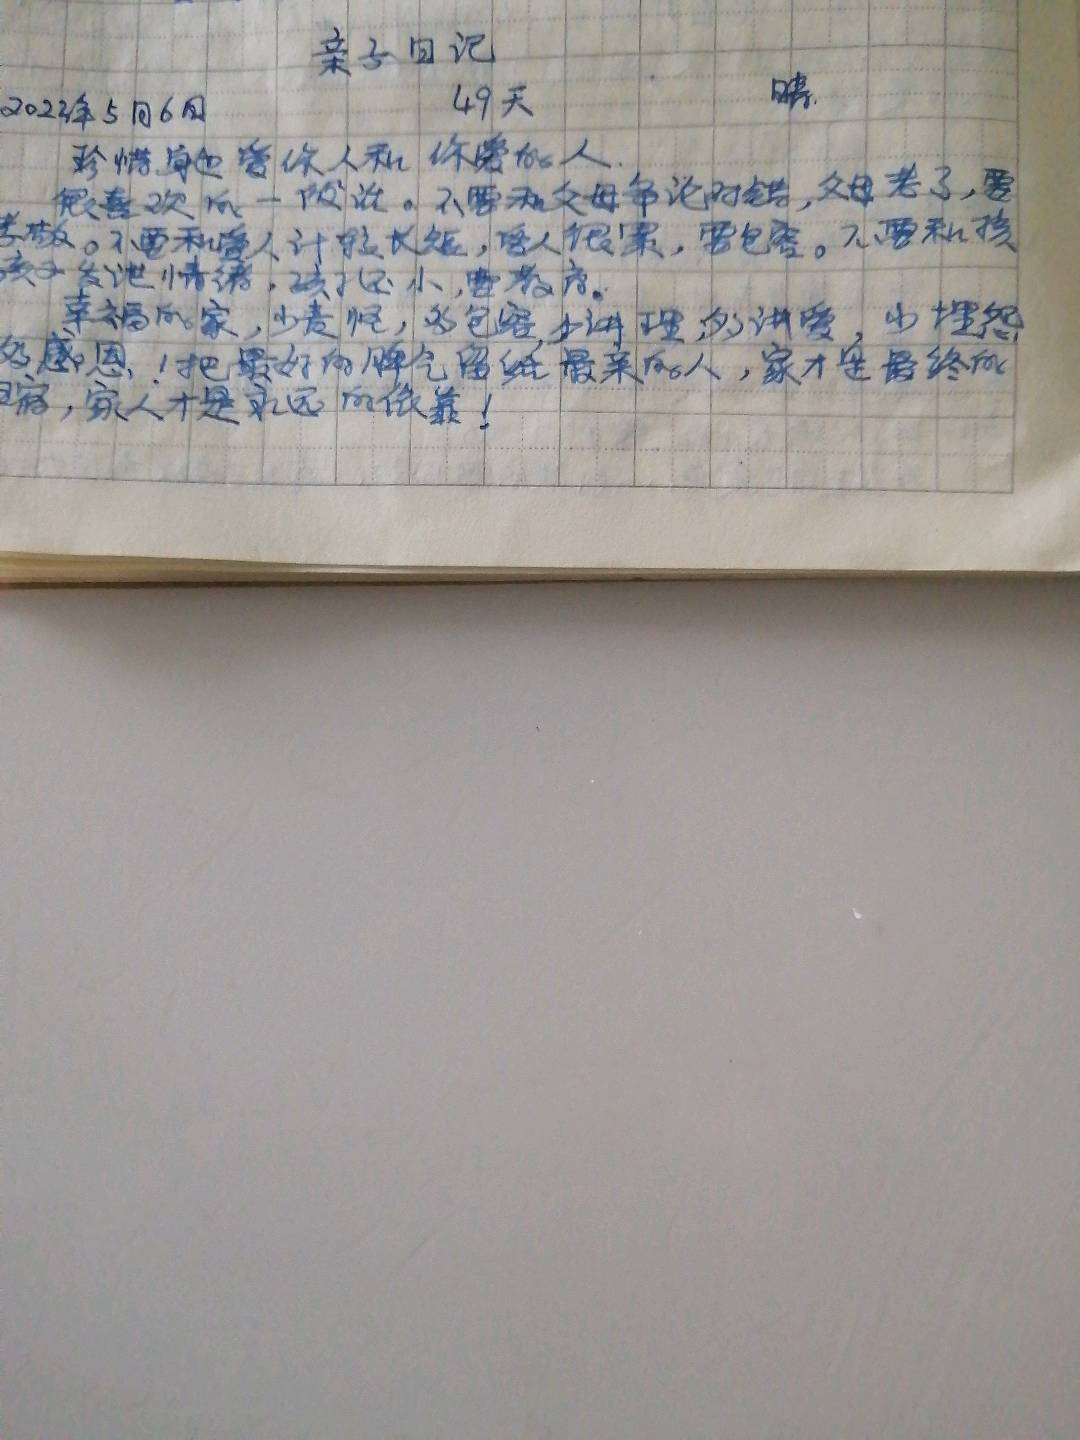 亲子日记
2022年5月6日 49天 晴
珍惜身边爱你人和你爱的人.
很喜欢的一段话。不要和父母争论对错,父母老了,要
孝敬。不要和爱人计较长短,爱人很累,要包容。不要和孩
孩子发泄情绪,孩子还小,要教育。
幸福的家,少责怪,多包容,少讲理,多讲爱,少埋怨
多感恩,!把最好的脾气留给最亲的人,家才是最终的
归宿,家人才是永远的依靠!